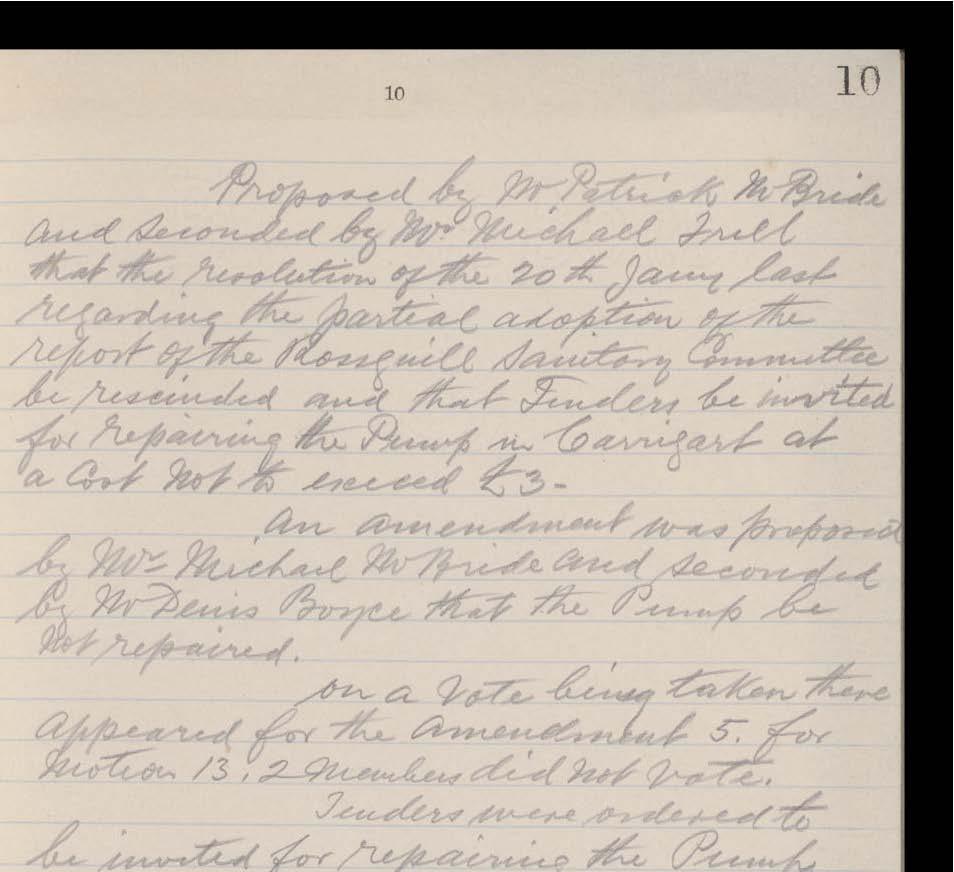 10
10
Proposed by Mr Patrick McBride
and seconded by Mr Michael Friel
that the resolution of the 20th Jany last
regarding the partial adoption of the
report of the Rossguill Sanitary Committee
be rescinded and that Tenders be invited
for repairing the Pump in Carrigart at
a Cost not to exceed £3-
An amendment was proposed
by Mr Michael McBride and seconded
by Mr Denis Boyce that the Pump be
not repaired.
on a Vote being taken there
appeared for the amendment 5. for
motion 13. 2 members did not vote.
Tenders were ordered to
be invited for repairing the Pump